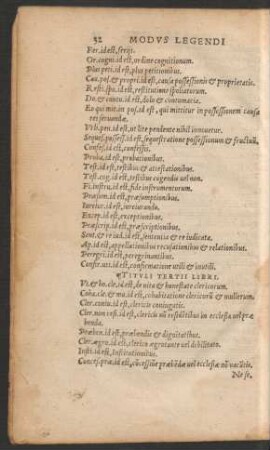 32 MODVS LEGENDI
Fer.id est,ferijs.
Or.cogni.id est,ordine cognitionum.
Plus peti.id est,plus petitionibus.
Cau.pos.& propri.id est,causa possessionis & proprietatis.
R.esti.spo.id est,restitutione spoliatorum.
Do.& contu.id est,dolo & contumacia.
Eo qui mit.in pos.id est,qui mittitur in possessionem causa
rei seruandæ.
Vt li.pen.id est,ut lite pendente nihil innouetur.
Seques.possess.id est,sequestratione possessionum & fructuũ.
Confes.id est,confessis.
Proba.id est,probationibus.
Test.id est,testibus & attestationibus.
Test.cog.id est,testibus cogendis uel non.
Fi.instru.id est,fide instrumentorum.
Præsum.id est,præsumptionibus.
Iureiur.id est,iureiurando.
Excep.id est,exceptionibus.
Præscrip.id est,præscriptionibus.
Sent.& re iud.id est,sententia & re iudicata.
Ap.id est,appellationibus recusationibus & relationibus.
Peregri.id est,peregrinantibus.
Confir.uti.id est,confirmatione utili & inutili.
TITVLI TERTII LIBRI.
Vi.& ho.cle.id est,de uita & honestate clericorum.
Coha.cle.& mu.id est,cohabitatione clericorũ & mulierum.
Cler.coniu.id est,clericis coniugatis.
Cler.non resi.id est,clericis nõ residẽtibus in ecclesia uel præ
benda.
Præben.id est,præbendis & dignitatibus.
Cler.ægro.id est,clerico ægrotante uel debilitato.
Insti.id est,Institutionibus.
Conces.præ.id est,cõcessiõe præbẽdæ uel ecclesiæ nõ vacãtis.
Ne se.